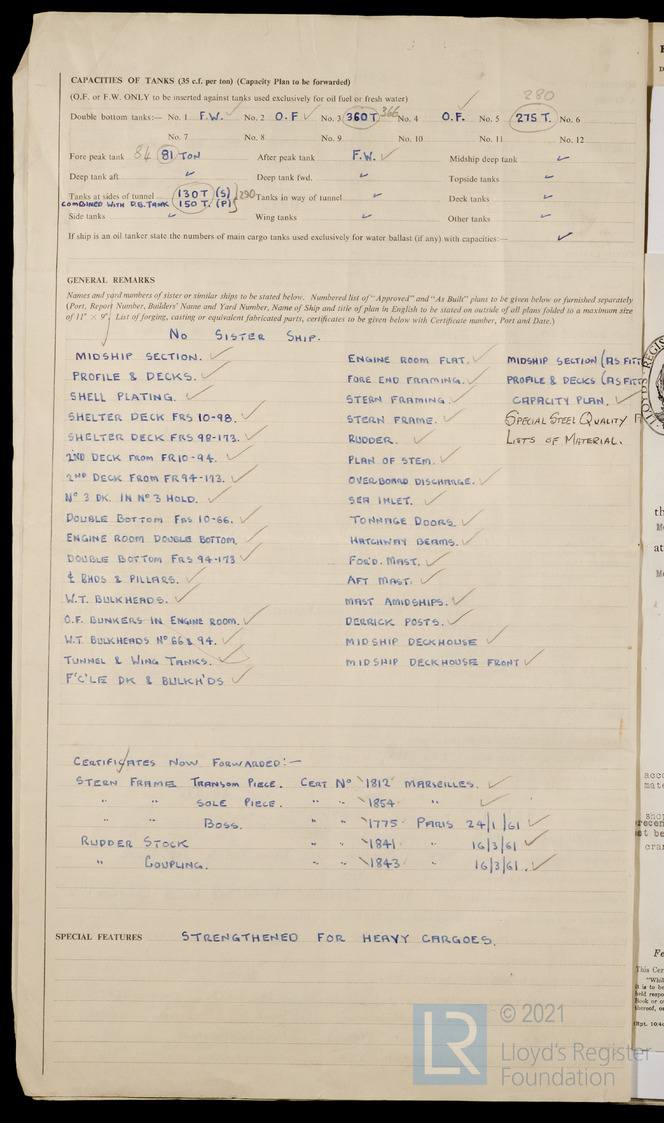 CAPACITIES OF TANKS (35 c.f. per ton) (Capacity Plan to be forwarded)
(O.F. or F.W. ONLY to be inserted against tanks used exclusively for oil fuel or fresh water)
280
Double bottom tanks:— No. 1 F.W. No. 2 O.F No. 3 360T 366 No. 4 O.F. No. 5 275 T. No. 6
No. 7 No. 8 No. 9 No. 10 No. 11 No. 12
Fore peak tank 84 81 TON After peak tank F.W. Midship deep tank
Deep tank aft Deep tank fwd. Topside tanks
Tanks at sides of tunnel 130T (S) 290 Tanks in way of tunnel Deck tanks
COMBINED WITH D.B. TANK 150 T. (P)
Side tanks Wing tanks Other tanks
If ship is an oil tanker state the numbers of main cargo tanks used exclusively for water ballast (if any) with capacities:—
GENERAL REMARKS
Names and yard numbers of sister or similar ships to be stated below. Numbered list of "Approved" and "As Built" plans to be given below or furnished separately
(Port, Report Number, Builders' Name and Yard Number, Name of Ship and title of plan in English to be stated on outside of all plans folded to a maximum size
of 11" × 9". List of forging, casting or equivalent fabricated parts, certificates to be given below with Certificate number, Port and Date.)
NO SISTER SHIP.
MIDSHIP SECTION.
PROFILE & DECKS.
SHELL PLATING.
SHELTER DECK FRS 10-98.
SHELTER DECK FRS 98-173.
2ND DECK FROM FR 10-94.
2ND DECK FROM FR 94-173.
Nº 3 DK. IN Nº 3 HOLD.
DOUBLE BOTTOM FRS 10-66.
ENGINE ROOM DOUBLE BOTTOM.
DOUBLE BOTTOM FRS 94-173
℄ BHDS & PILLARS.
W.T. BULKHEADS.
O.F. BUNKERS IN ENGINE ROOM.
W.T. BULKHEADS Nº 66 & 94.
TUNNEL & WING TANKS.
F'C'LE DK & BULKH'DS
ENGINE ROOM FLAT.
FORE END FRAMING.
STERN FRAMING.
STERN FRAME.
RUDDER.
PLAN OF STEM.
OVERBOARD DISCHARGE.
SEA INLET.
TONNAGE DOORS.
HATCHWAY BEAMS.
FOR'D. MAST.
AFT MAST.
MAST AMIDSHIPS.
DERRICK POSTS.
MIDSHIP DECKHOUSE
MIDSHIP DECKHOUSE FRONT
MIDSHIP SECTION (AS FITT
PROFILE & DECKS (AS FITT
CAPACITY PLAN.
SPECIAL STEEL QUALITY
LISTS OF MATERIAL.
CERTIFICATES NOW FORWARDED:—
STERN FRAME TRANSOM PIECE. CERT Nº 1812 MARSEILLES.
" " SOLE PIECE. " " 1854 "
" " BOSS. " " 1775 PARIS 24/1/61
RUDDER STOCK " " 1841 " 16/3/61
" COUPLING. " " 1843 " 16/3/61.
SPECIAL FEATURES STRENGTHENED FOR HEAVY CARGOES.
LR © 2021
Lloyd's Register
Foundation